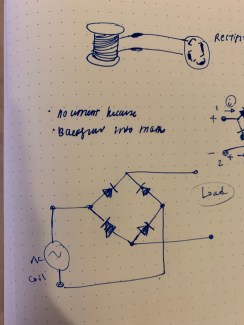 Rectifi
· No current because
· Backflow into main
i
1
+
-
2
+
Load
AC
Coil